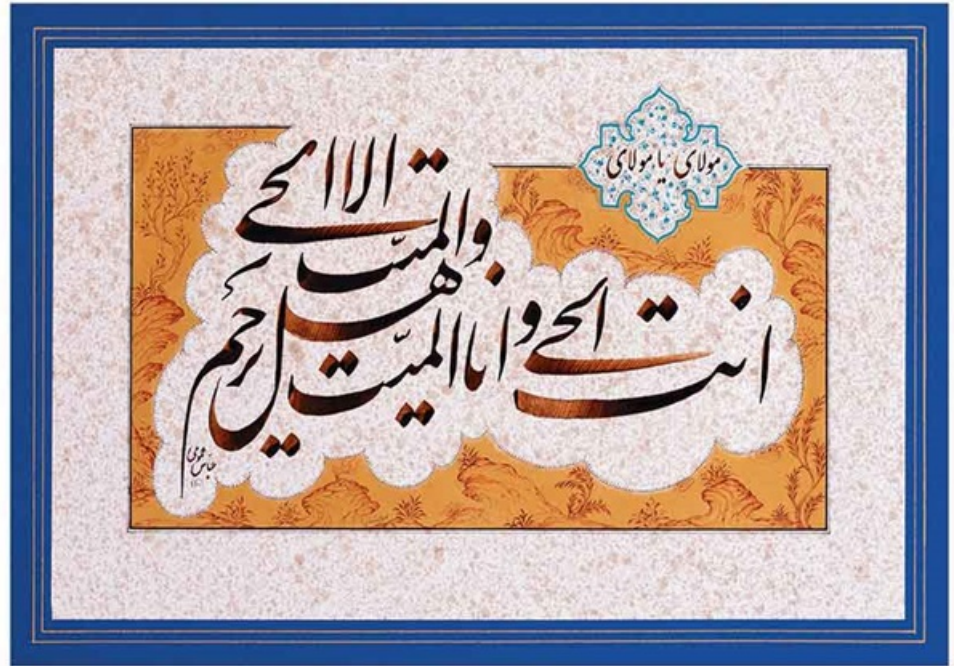 مولای یا مولای
انت الحی و انا المیّت و هل یرحم المیّت الا الحی
عباس